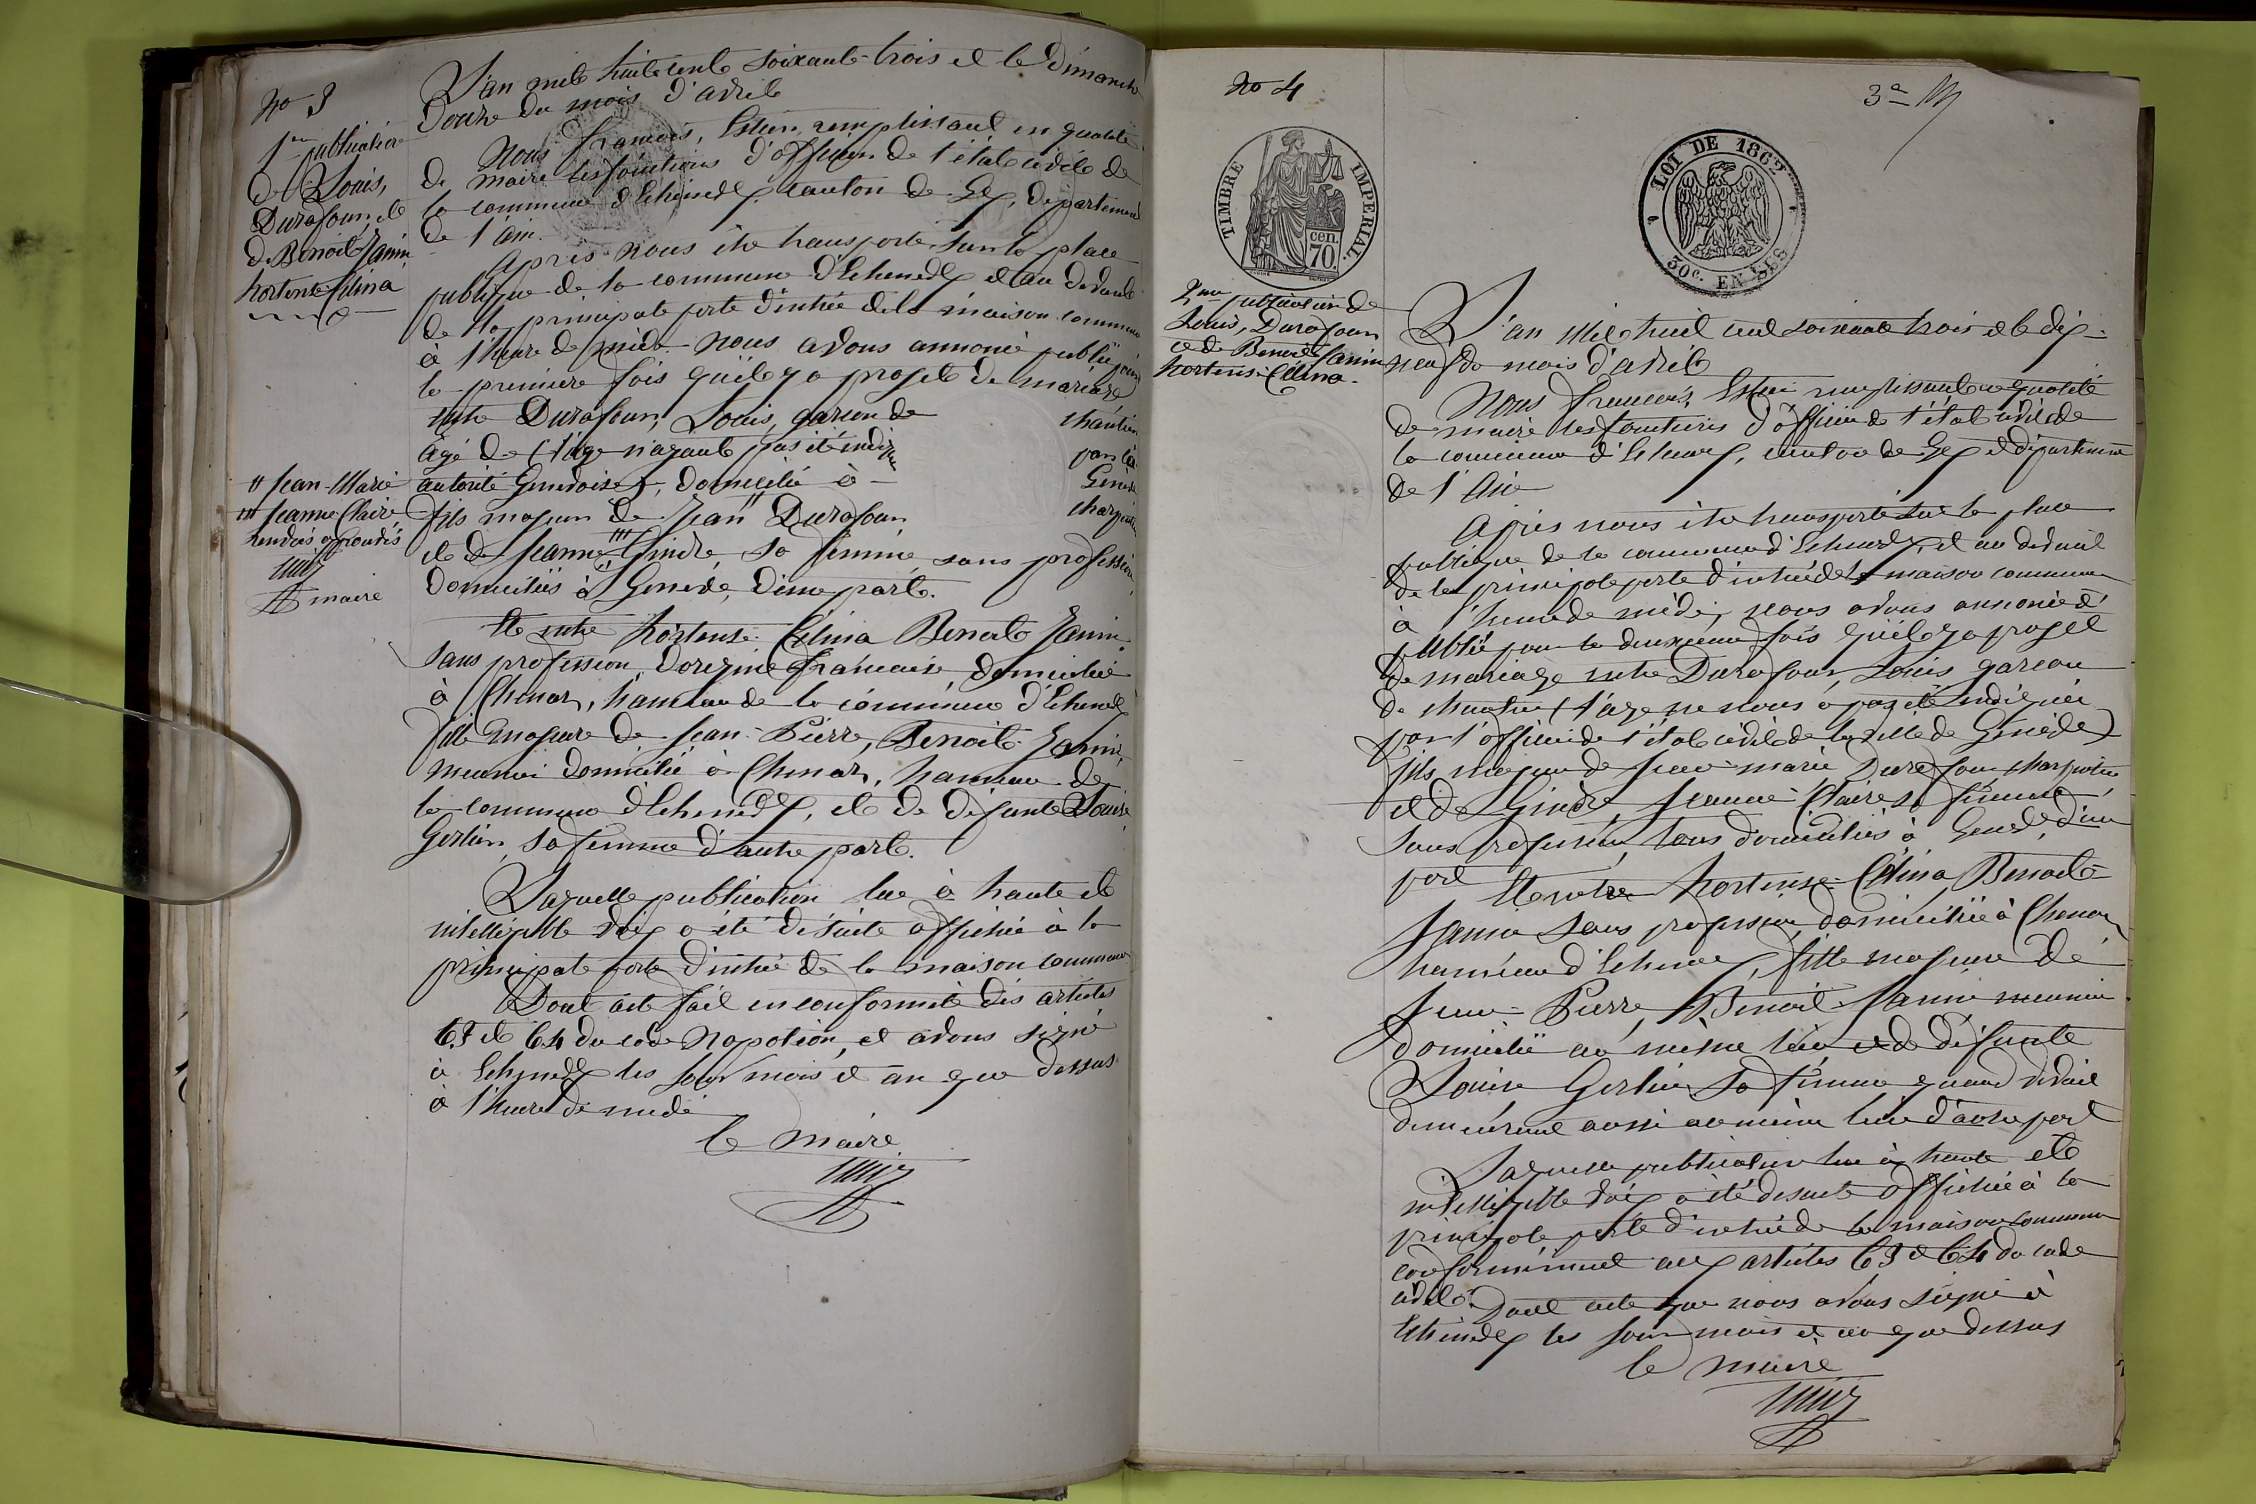 No 3
1ere publication
de Louis,
Durafour, et
de Benoit Janin
hortense Célina
L'an mil huit cent soixante-trois et le dimanche
douze du mois d'avril
Nous françois, Estier, remplissant en qualité
de maire les fonctions d'officier de l'état civil de
la commune d'Echenevex, canton de Gex, département
de l'ain.
Après nous être transporté sur la place
publique de la commune d'Echenevex et au devant
de la principale porte d'entrée de la maison commune
à l'heure de midi. nous avons annoncé publié pour
la première fois qu'il y a projet de mariage
entre Durafour, Louis, garcon de chantier
agé de (l'age n'ayant pas été indiqué par la
autorité Genevoise), domicilié à Genève
fils majeur de Jean " Durafour, charpentier
et de Jeanne "" Gindre, sa femme, sans profession,
domiciliés à Genève, d'une part.
" Jean-Marie
"" Jeanne Claire
renvois approuvés
maire
Et entre hortense Célina Benoit Janin
sans profession, d'origine francaise domiciliée
à Chenaz, hameau de la commune d'Echenevex
fille majeure de Jean-Pierre, Benoit-Janin,
meunier domicilié à Chenaz, hameau de
la commune d'Echenevex, et de défunte Louise
Gerlier, sa femme d'autre part.
Laquelle publication lue à haute et
intelligible voix a été de suite affichée à la
principale porte d'entrée de la maison commune
Dont acte fait en conformité des articles
63 et 64 du code Napoléon, et avons signé
à Echenevex les jour mois et an que dessus
à l'heure de midi
le maire
No 4
3e
TIMBRE IMPERIAL.
70 cen.
LOI DE 1862
50c. EN SUS
2me publication de
Louis, Durafour
et de Benoit Janin
hortense-Célina.
L'an Mil huit cent soixante trois et le dix-
neuf du mois d'avril
Nous francois, Estier remplissant en qualité
de maire les fonctions d'officier de l'état civil de
la commune d'Echenevex, canton de Gex et département
de l'Ain
Après nous être transporté sur la place
publique de la commune d'Echenevex, et au devant
de la principale porte d'entrée de la maison commune
à l'heure de midi, nous avons annoncé et
publié pour la deuxieme fois qu'il y a projet
de mariage entre Durafour, Louis garcon
de chantier (l'age ne nous a pas été indiqué
par l'officier de l'état civil de la ville de Genève)
fils majeur de Jean-marie Durafour charpentier
et de Gindre, Jeanne-Claire sa femme,
sans profession, tous domiciliés à Genève, d'une
part
Et entre hortense-Célina Benoit-
Janin sans profession domiciliée à Chenaz
hameau d'Echenevex, fille majeure de
Jean-Pierre, Benoit-Janin meunier
domicilié au même lieu et de défunte
Louise Gerlier, sa femme quand vivait
demeurant aussi au même lieu d'autre part
Laquelle publication lue à haute et
intelligible voix a été de suite affichée à la
principale porte d'entrée de la maison commune
conformément aux articles 63 et 64 du code
civil. Dont acte que nous avons signé à
Echenevex les jour mois et an que dessus
le maire